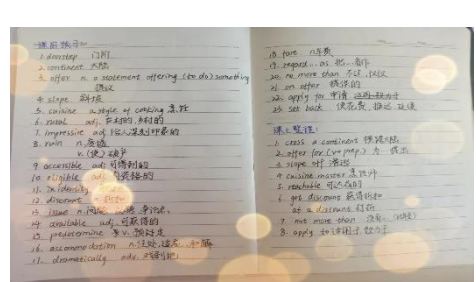 1. doorstep 门前
2. continent 大陆
3. offer n. a statement offering (to do) something
提议
4. slope 斜坡
5. cuisine a style of cooking 烹饪
6. rural adj. 乡村的,
7. impressive adj. 给人深刻印象的
8. ruin n. 废墟
v. (使)破产
9. accessible adj. 可得到的
10. eligible adj. 有资格的
11. in identity
12. discount n. 折扣
13. issue n.
14. available adj. 可获得的
15. predetermine v. 预先定
16. accommodation n. 住处,
17. dramatically adv. 戏剧地
18. fare n. 车费
19. regard... as 把...看作
20. no more than 不过, 仅仅
21. on offer 提供的
22. apply for 申请
23. set back 使花费, 推迟, 延误
课上整理:
1. cross a continent 横跨大陆
2. offer for (v+prep.) 为...提出
3. slope off 溜走
4. cuisine master 烹饪师
5. reachable 可达成的
6. get discount 获得折扣
at a discount 打折
7. not more than 没有...(比较)
8. apply to 适用于